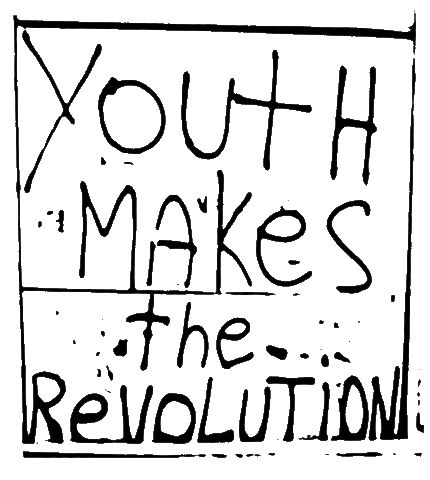 YOUtH
MAKes
the
ReVOLUTION